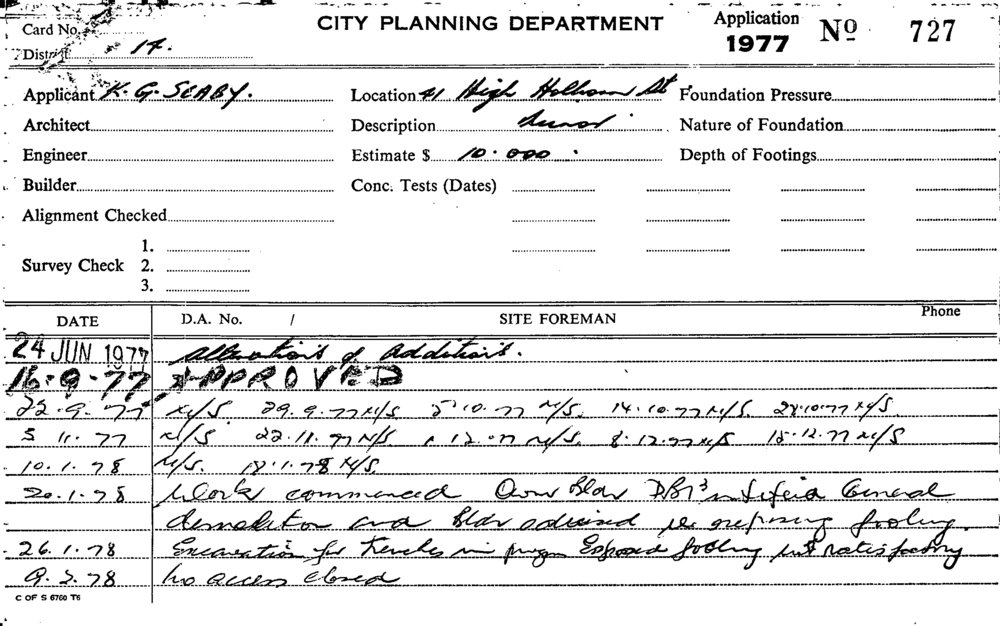 Card No.
CITY PLANNING DEPARTMENT
Application 1977 Nº 727
District 14.
Applicant K. G. SEABY.
Location 41 High Holborn St
Foundation Pressure
Architect
Description
Nature of Foundation
Engineer
Estimate $ 10.000.
Depth of Footings
Builder
Conc. Tests (Dates)
Alignment Checked
1.
Survey Check 2.
3.
DATE D.A. No. / SITE FOREMAN Phone
24 JUN 1977 Alterations & Additions.
16.9.77 APPROVED
22.9.77 N/S. 29.9.77 N/S 5.10.77 N/S. 14.10.77 N/S. 28.10.77 N/S.
N/S 22.11.77 N/S 12.77 N/S. 8.12.77 N/S 15.12.77 N/S
10.1.78 N/S. 18.1.78 N/S.
20.1.78 Work commenced Own Bldr General
demolition and Bldr advised re exposing footing.
26.1.78 Excavation for trenches in Exposed footing satisfactory
No access closed
C OF S 6760 T6